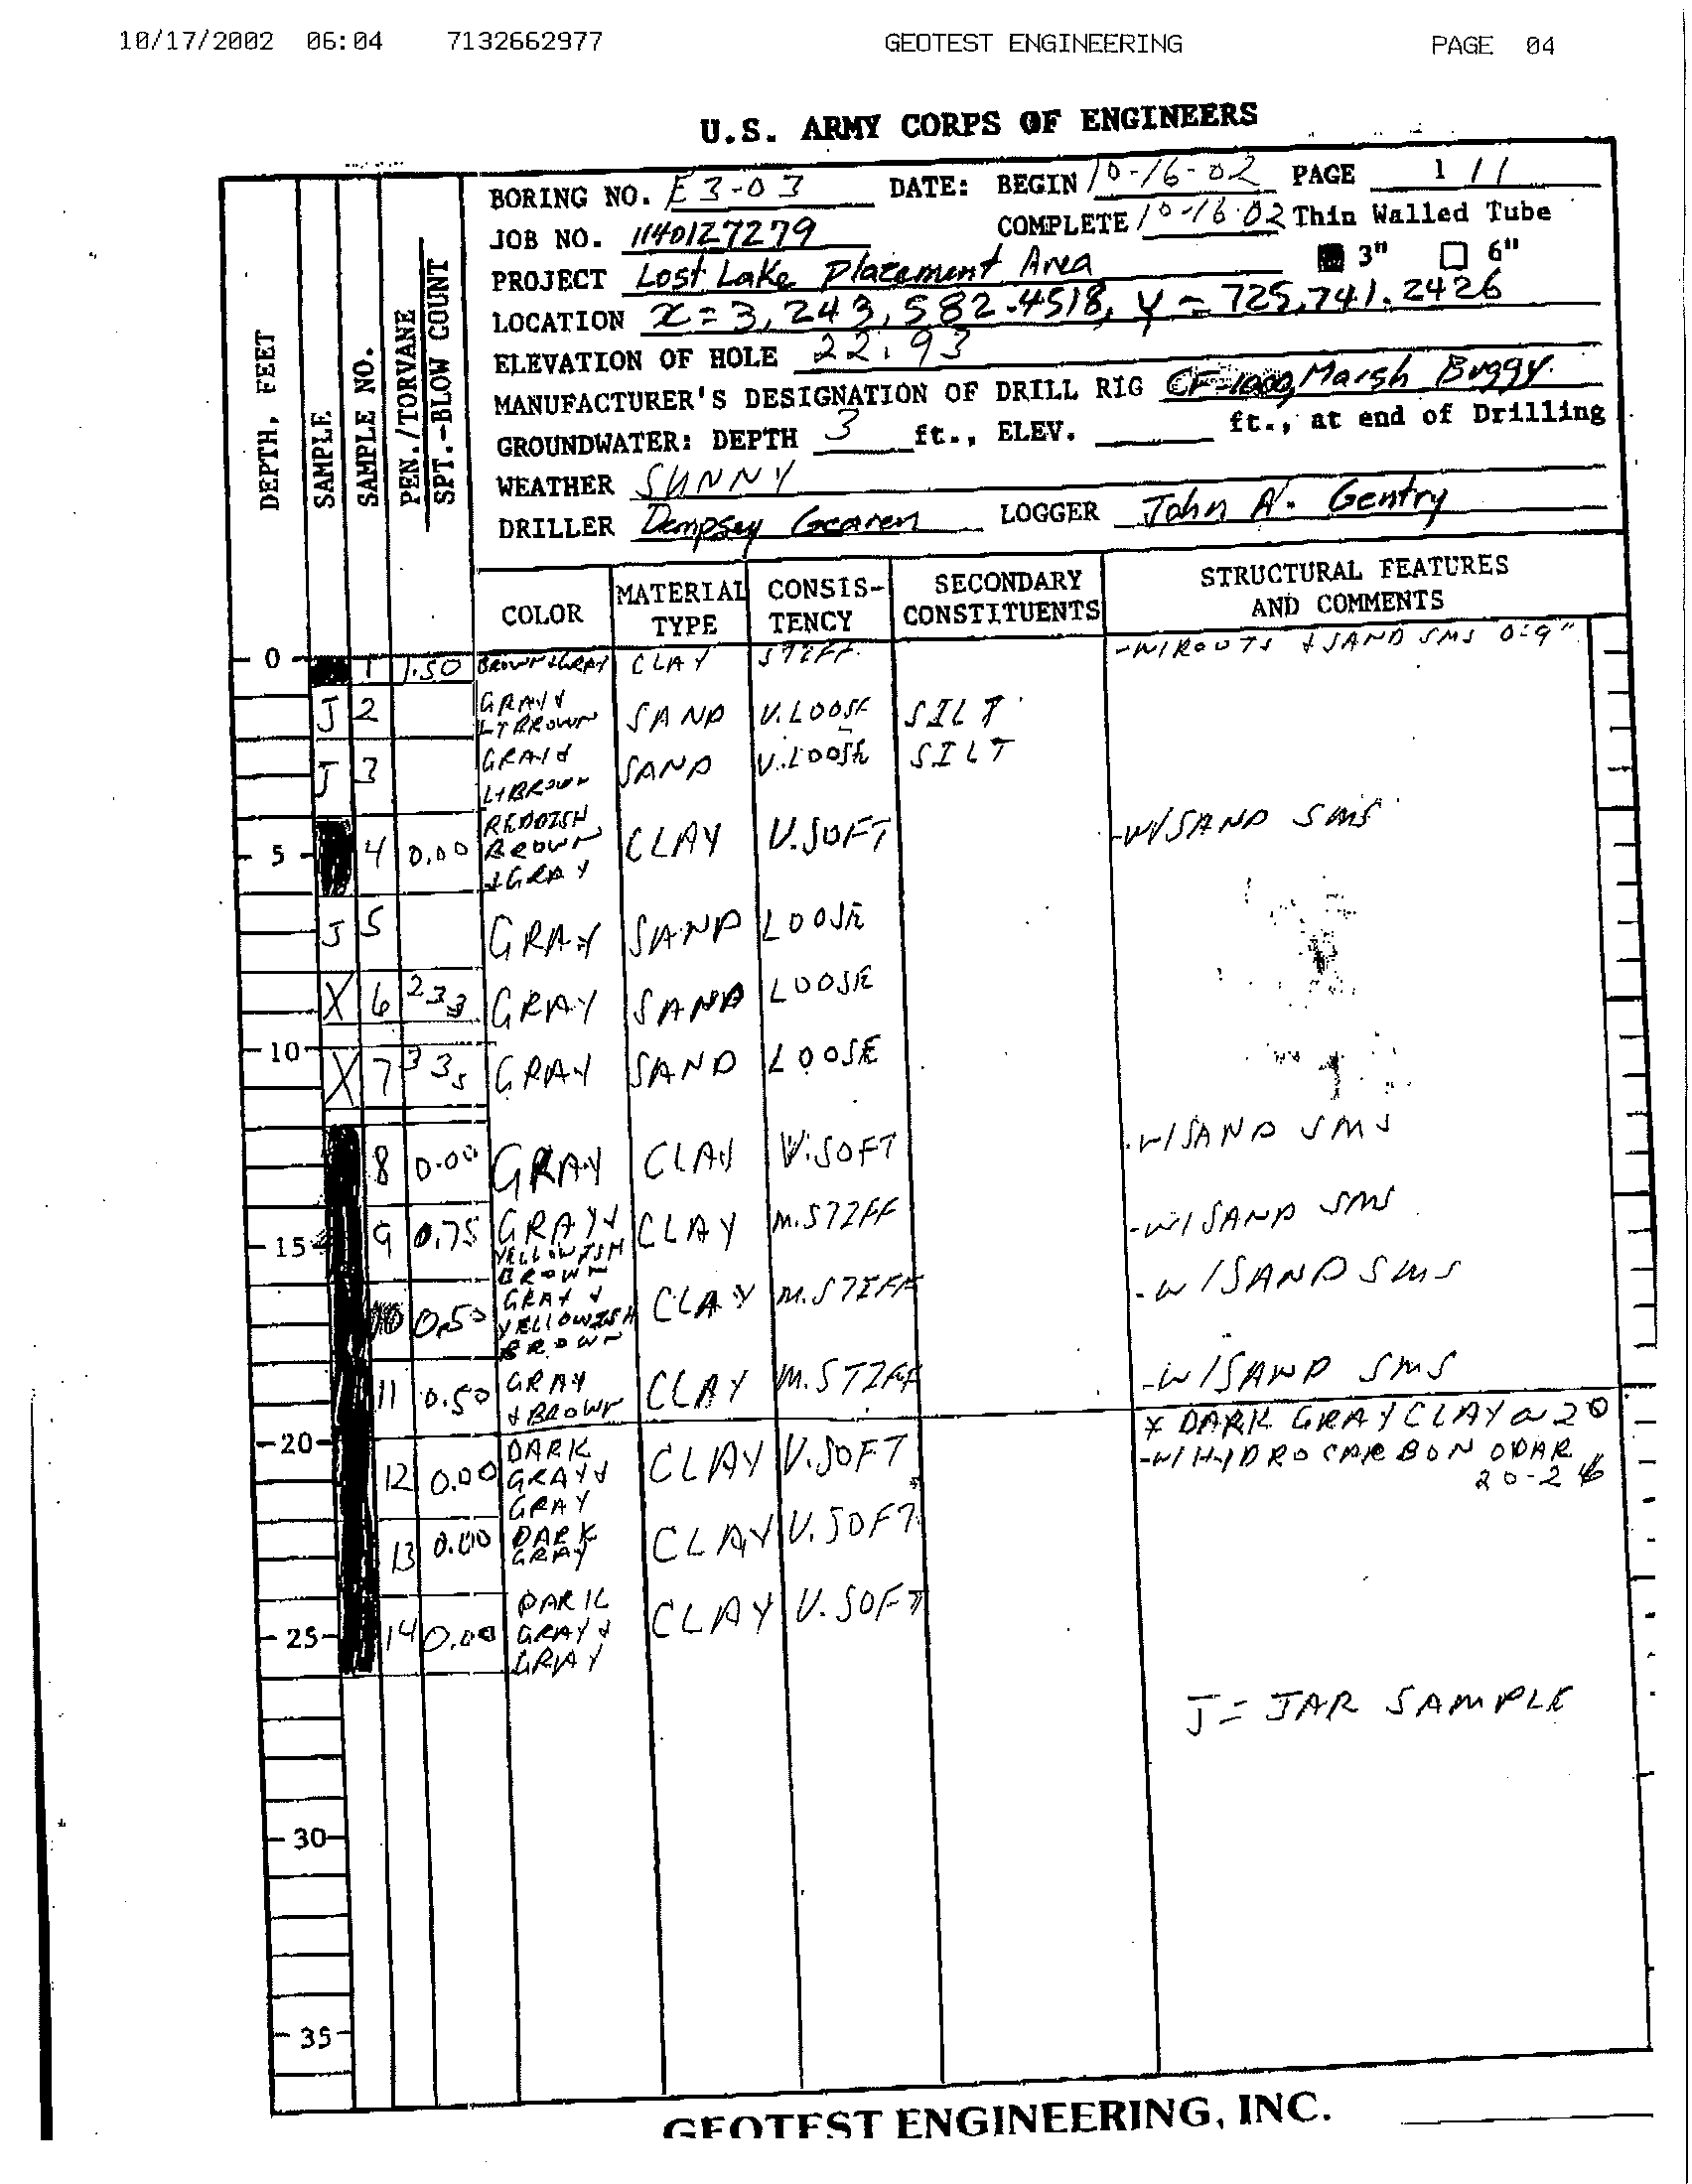 10/17/2002 06:04 7132662977 GEOTEST ENGINEERING PAGE 04
U.S. ARMY CORPS OF ENGINEERS
DEPTH, FEET
SAMPLE
SAMPLE NO.
PEN./TORVANE
SPT.-BLOW COUNT
BORING NO. E3-03 DATE: BEGIN 10-16-02 PAGE 1 / 1
JOB NO. 1140127279 COMPLETE 10-16-02 Thin Walled Tube
PROJECT Lost Lake Placement Area 3" 6"
LOCATION x = 3,243,582.4518, y = 725,741.2426
ELEVATION OF HOLE 22.93
MANUFACTURER'S DESIGNATION OF DRILL RIG CF-1000, Marsh Buggy.
GROUNDWATER: DEPTH 3 ft., ELEV. ft., at end of Drilling
WEATHER SUNNY
DRILLER Dempsey LOGGER John A. Gentry
COLOR MATERIAL TYPE CONSIS-TENCY SECONDARY CONSTITUENTS STRUCTURAL FEATURES AND COMMENTS
0 1 1.50 BROWN & GRAY CLAY STIFF -W/ROOTS & SAND SMS 0-9"
J 2 GRAY & LT BROWN SAND V.LOOSE SILT
J 3 GRAY & LT BROWN SAND V.LOOSE SILT
5 4 0.00 REDDISH BROWN & GRAY CLAY V.SOFT -W/SAND SMS
J 5 GRAY SAND LOOSE
X 6 2 3 3 GRAY SAND LOOSE
10 X 7 3 3 5 GRAY SAND LOOSE
8 0.00 GRAY CLAY V.SOFT -W/SAND SMS
15 9 0.75 GRAY & YELLOWISH BROWN CLAY M.STIFF -W/SAND SMS
10 0.50 GRAY & YELLOWISH BROWN CLAY M.STIFF -W/SAND SMS
11 0.50 GRAY & BROWN CLAY M.STIFF -W/SAND SMS
* DARK GRAY CLAY @ 20
20 12 0.00 DARK GRAY & GRAY CLAY V.SOFT -W/HYDROCARBON ODAR 20-26
13 0.00 DARK GRAY CLAY V.SOFT
25 14 0.00 DARK GRAY & GRAY CLAY V.SOFT
J = JAR SAMPLE
30
35
GEOTEST ENGINEERING, INC.